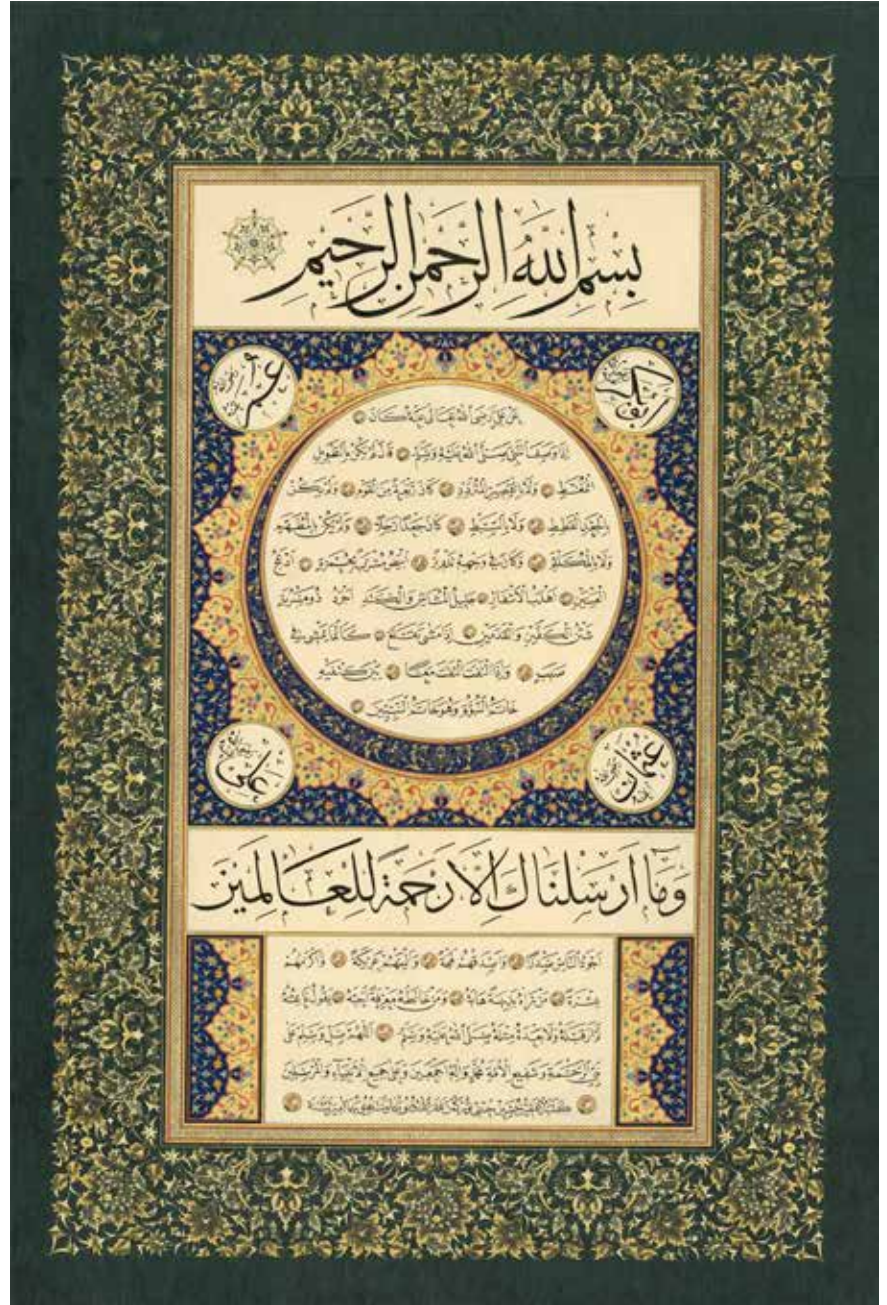 بِسْمِ اللّٰهِ الرَّحْمٰنِ الرَّحِيمِ
ابو بكر رضي الله عنه
عمر رضي الله عنه
عن علي رضي الله تعالى عنه كان
اذا وصف النبي صلى الله عليه وسلم قال لم يكن بالطويل
الممغط ولا بالقصير المتردد كان ربعة من القوم ولم يكن
بالجعد القطط ولا بالسبط كان جعدا رجلا ولم يكن بالمطهم
ولا بالمكلثم وكان في وجهه تدوير ابيض مشرب بحمرة ادعج
العينين اهدب الاشفار جليل المشاش والكتد اجرد ذو مسربة
شثن الكفين والقدمين اذا مشى تقلع كانما يمشي في
صبب واذا التفت التفت معا بين كتفيه
خاتم النبوة وهو خاتم النبيين
عثمان رضي الله عنه
علي رضي الله عنه
وَمَا اَرْسَلْنَاكَ اِلَّا رَحْمَةً لِلْعَالَمِينَ
اجود الناس صدرا واصدقهم لهجة والينهم عريكة واكرمهم
عشرة من رآه بديهة هابه ومن خالطه معرفة احبه يقول ناعته
لم ار قبله ولا بعده مثله صلى الله عليه وسلم اللهم صل وسلم على
نبي الرحمة وشفيع الامة محمد وآله اجمعين وعلى جميع الانبياء والمرسلين